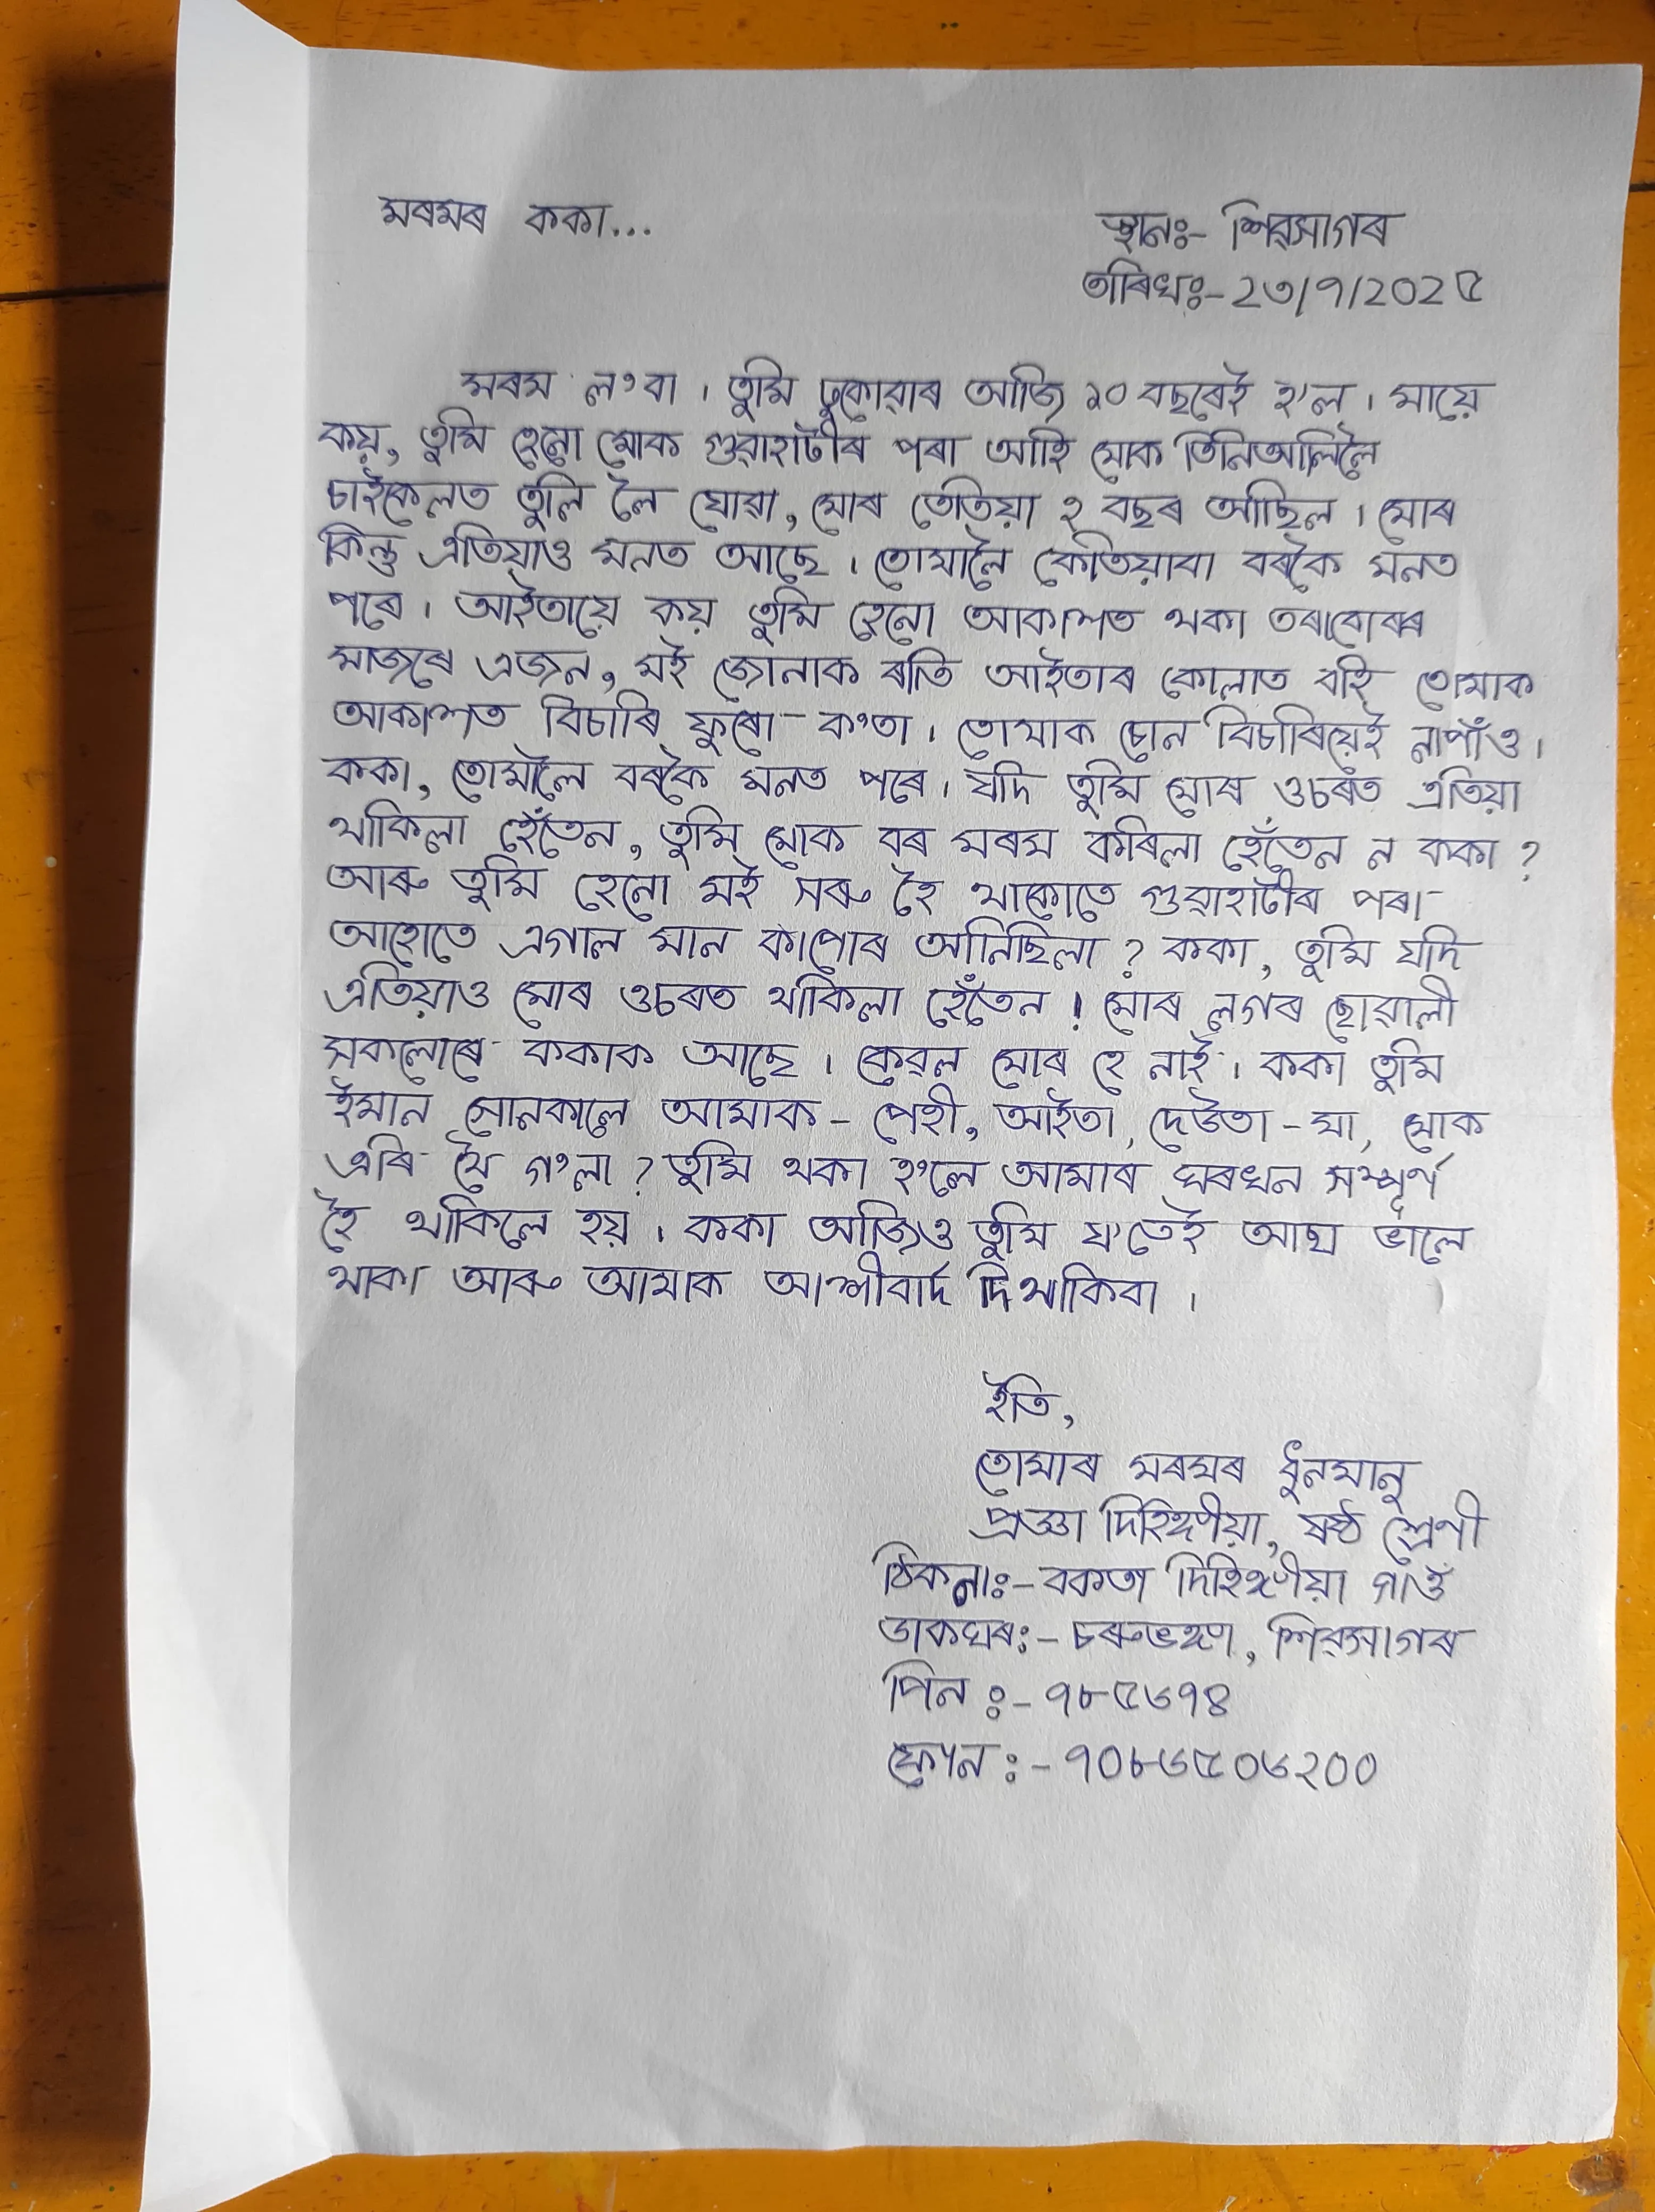 মৰমৰ ককা...
স্থানঃ- শিৱসাগৰ
তাৰিখঃ- 2৩/৭/202৫
মৰম ল'বা । তুমি ঢুকোৱাৰ আজি ১০ বছৰেই হ'ল । মায়ে
কয়, তুমি হেনো মোক গুৱাহাটীৰ পৰা আহি মোক তিনিআলিলৈ
চাইকেলত তুলি লৈ যোৱা, মোৰ তেতিয়া ২ বছৰ আছিল । মোৰ
কিন্তু এতিয়াও মনত আছে । তোমালৈ কেতিয়াবা বৰকৈ মনত
পৰে । আইতায়ে কয় তুমি হেনো আকাশত থকা তৰাবোৰৰ
মাজৰে এজন, মই জোনাক ৰাতি আইতাৰ কোলাত বহি তোমাক
আকাশত বিচাৰি ফুৰো ক'তা । তোমাক চোন বিচাৰিয়েই নাপাঁও ।
ককা, তোমালৈ বৰকৈ মনত পৰে । যদি তুমি মোৰ ওচৰত এতিয়া
থাকিলা হেঁতেন, তুমি মোক বৰ মৰম কৰিলা হেঁতেন ন ককা ?
আৰু তুমি হেনো মই সৰু হৈ থাকোতে গুৱাহাটীৰ পৰা
আহোতে এগাল মান কাপোৰ আনিছিলা ? ককা, তুমি যদি
এতিয়াও মোৰ ওচৰত থাকিলা হেঁতেন ! মোৰ লগৰ ছোৱালী
সকলোৰে ককাক আছে । কেৱল মোৰ হে নাই । ককা তুমি
ইমান সোনকালে আমাক - পেহী, আইতা, দেউতা - মা, মোক
এৰি থৈ গ'লা ? তুমি থকা হ'লে আমাৰ ঘৰখন সম্পূৰ্ণ
হৈ থাকিলে হয় । ককা আজিও তুমি য'তেই আছা ভালে
থাকা আৰু আমাক আশীৰ্বাদ দি থাকিবা ।
ইতি,
তোমাৰ মৰমৰ ধুনমানু
প্ৰজ্ঞা দিহিঙ্গীয়া, ষষ্ঠ শ্ৰেণী
ঠিকনাঃ- বকতা দিহিঙ্গীয়া গাওঁ
ডাকঘৰঃ- চৰুভঙ্গা, শিৱসাগৰ
পিন ঃ- ৭৮৫৬৭৪
ফোন ঃ- ৭০৮৬৫০৬২০০